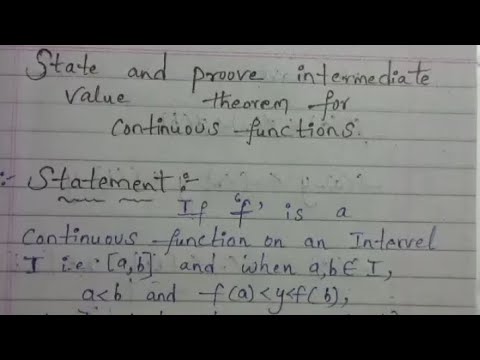 State and proove intermediate
value theorem for
continuous functions.
:- Statement:-
If 'f' is a
continuous function on an Intervel
I i.e. [a,b] and when a,b∈I,
a<b and f(a)<y<f(b),